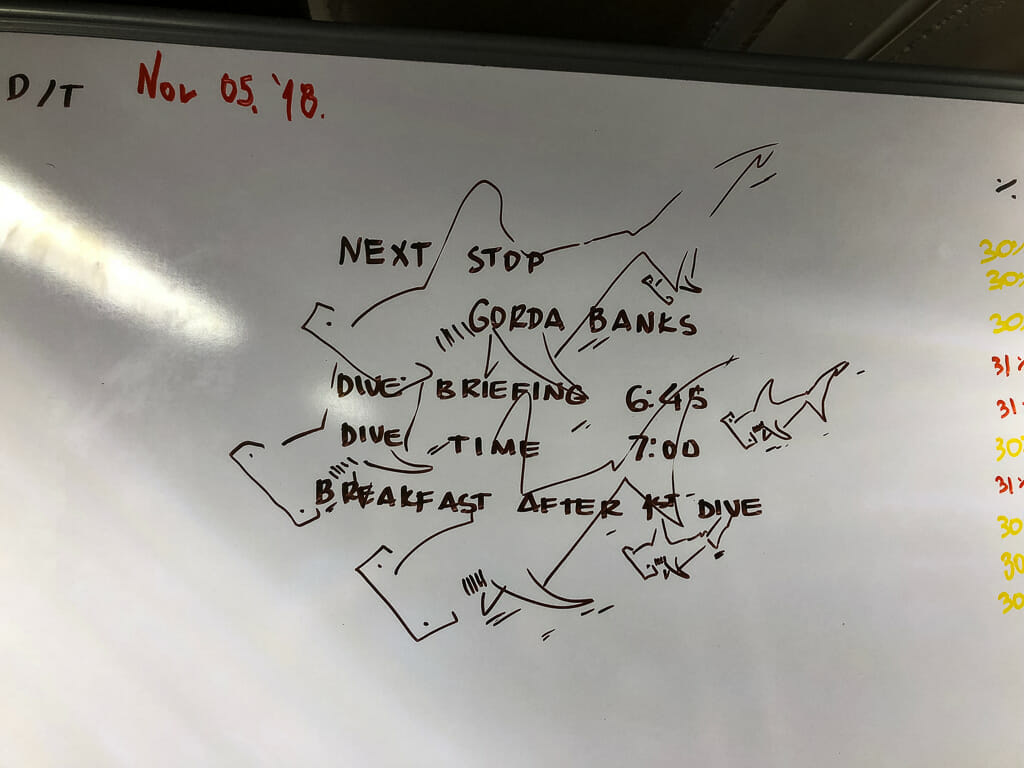 D/T Nov 05. '18.
NEXT STOP
GORDA BANKS
DIVE BRIEFING 6:45
DIVE TIME 7:00
BREAKFAST AFTER 1ST DIVE
%
30%
30%
30
31%
31
30
31%
30
30
30